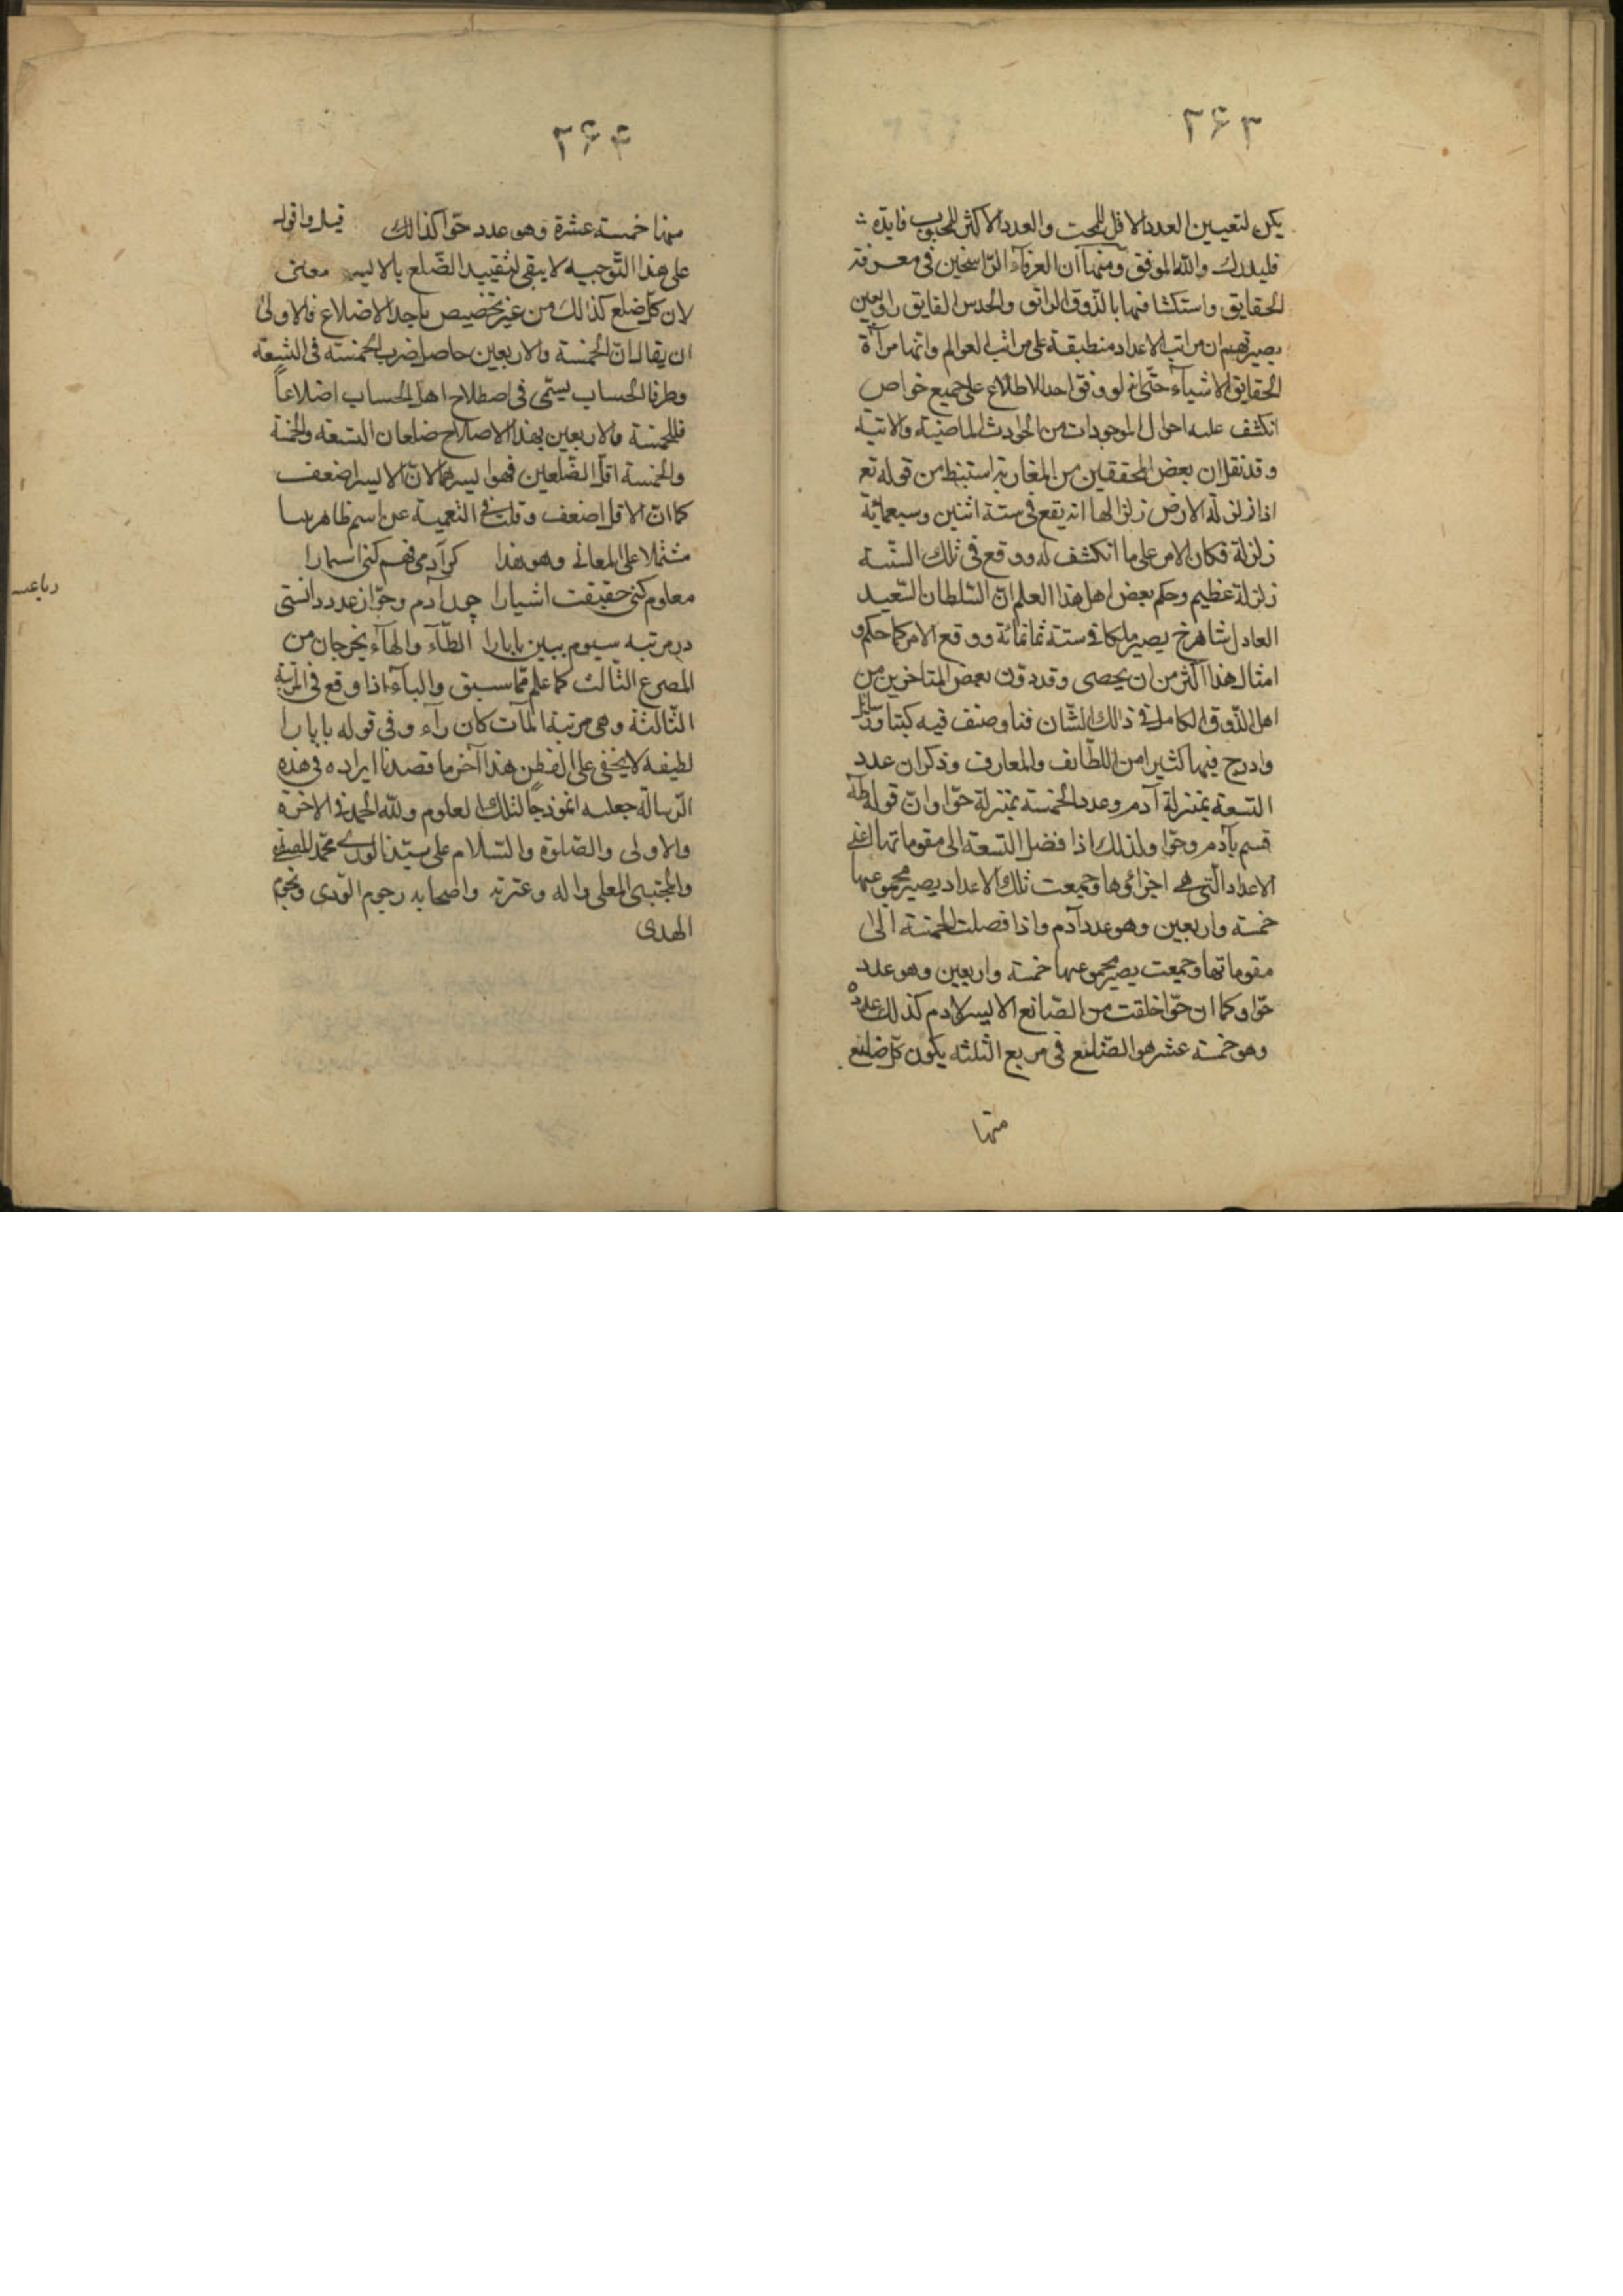 ۲۶۳
يكن لتعيين العدد الاقل للمحب والعدد الاكثر للمحبوب فايدة
فليدرك والله الموفق ومنها ان العرفاء الراسخين فى معرفة
الحقايق واستكشافها بالذوق الرائق والحدس الفايق راو بعين
بصيرتهم ان مراتب الاعداد منطبقة على مراتب العوالم وانها مرآة
الحقايق الاشياء حتى انه لو وفق احد للاطلاع على جميع خواص
انكشف عليه احوال الموجودات من الحوادث الماضية والاتية
وقد نقل ان بعض المحققين من المغاربة استنبط من قوله تع
اذا زلزلة الارض زلزالها انه يقع فى سنة اثنين وسبعمائة
زلزلة فكان الامر على ما انكشف له ووقع فى تلك السنة
زلزلة عظيم وحكم بعض اهل هذا العلم ان السلطان السعيد
العادل شاهرخ يصير ملكا فى سنة ثمانمائة ووقع الامر كما حكم و
امثال هذا اكثر من ان يحصى وقد دون بعض المتاخرين من
اهل الذوق الكامل فى ذالك الشان فنا وصنف فيه كتبا ورسائل
وادرج فيها كثيرا من اللطائف والمعارف وذكر ان عدد
التسعة بمنزلة آدم وعدد الخمسة بمنزلة حوا وان قوله طه
قسم بآدم وحوا ولذلك اذا فضل التسعة الى مقوماتها اعنى
الاعداد التى هى اجزائوها وجمعت تلك الاعداد يصير مجموعها
خمسة واربعين وهو عدد آدم واذا فصلت الخمسة الى
مقوماتها وجمعت يصير مجموعها خمسة واربعين وهو عدد
حوا وكما ان حوا خلقت من الضانع الايسر لادم كذلك عدده
وهو خمسة عشر هو الضلع فى مربع الثلثه يكون كل ضلع
منها
۲۶۴
منها خمسة عشرة وهو عدد حوا كذالك قيل واقول
على هذا التوجيه لا يبقى لتقييد الضلع بالايسر معنى
لان كل ضلع كذالك من غير تخصيص باحد الاضلاع فالاولى
ان يقال ان الخمسة والاربعين حاصل ضرب الخمسة فى التسعة
وطرفا الحساب يسمى فى اصطلاح اهل الحساب اضلاعاً
فللخمسة والاربعين بهذا الاصلاح ضلعان التسعة والخمسة
والخمسة اقل الضلعين فهو ايسرهما لان الايسر اضعف
كما ان الاقل اضعف وقلت فى التعمية عن اسم ظاهر بيتا
مشتملا على المعانى وهو هذا كر آدمى فهم كنى اسما را
رباعيه
معلوم كنى حقيقت اشيا را چون آدم وحوا ز عدد دانستى
در مرتبه سيوم ببين بابا را الطآء والهآء يخرجان من
المصرع الثالث كما علم مما سبق والبآء اذا وقع فى المرتبة
الثالثة وهى مرتبة المآت كان رآء وفى قوله بابا را
لطيفه لا يخفى على الفطن هذا آخر ما قصدنا ايراده فى هذه
الرسالة جعلته انموذجاً لتلك العلوم ولله الحمد فى الاخرة
والاولى والصلوة والسلام على سيدنا الورى محمد المصطفى
والمجتبى المعلى واله وعترته واصحابه رجوم الردى ونجوم
الهدى